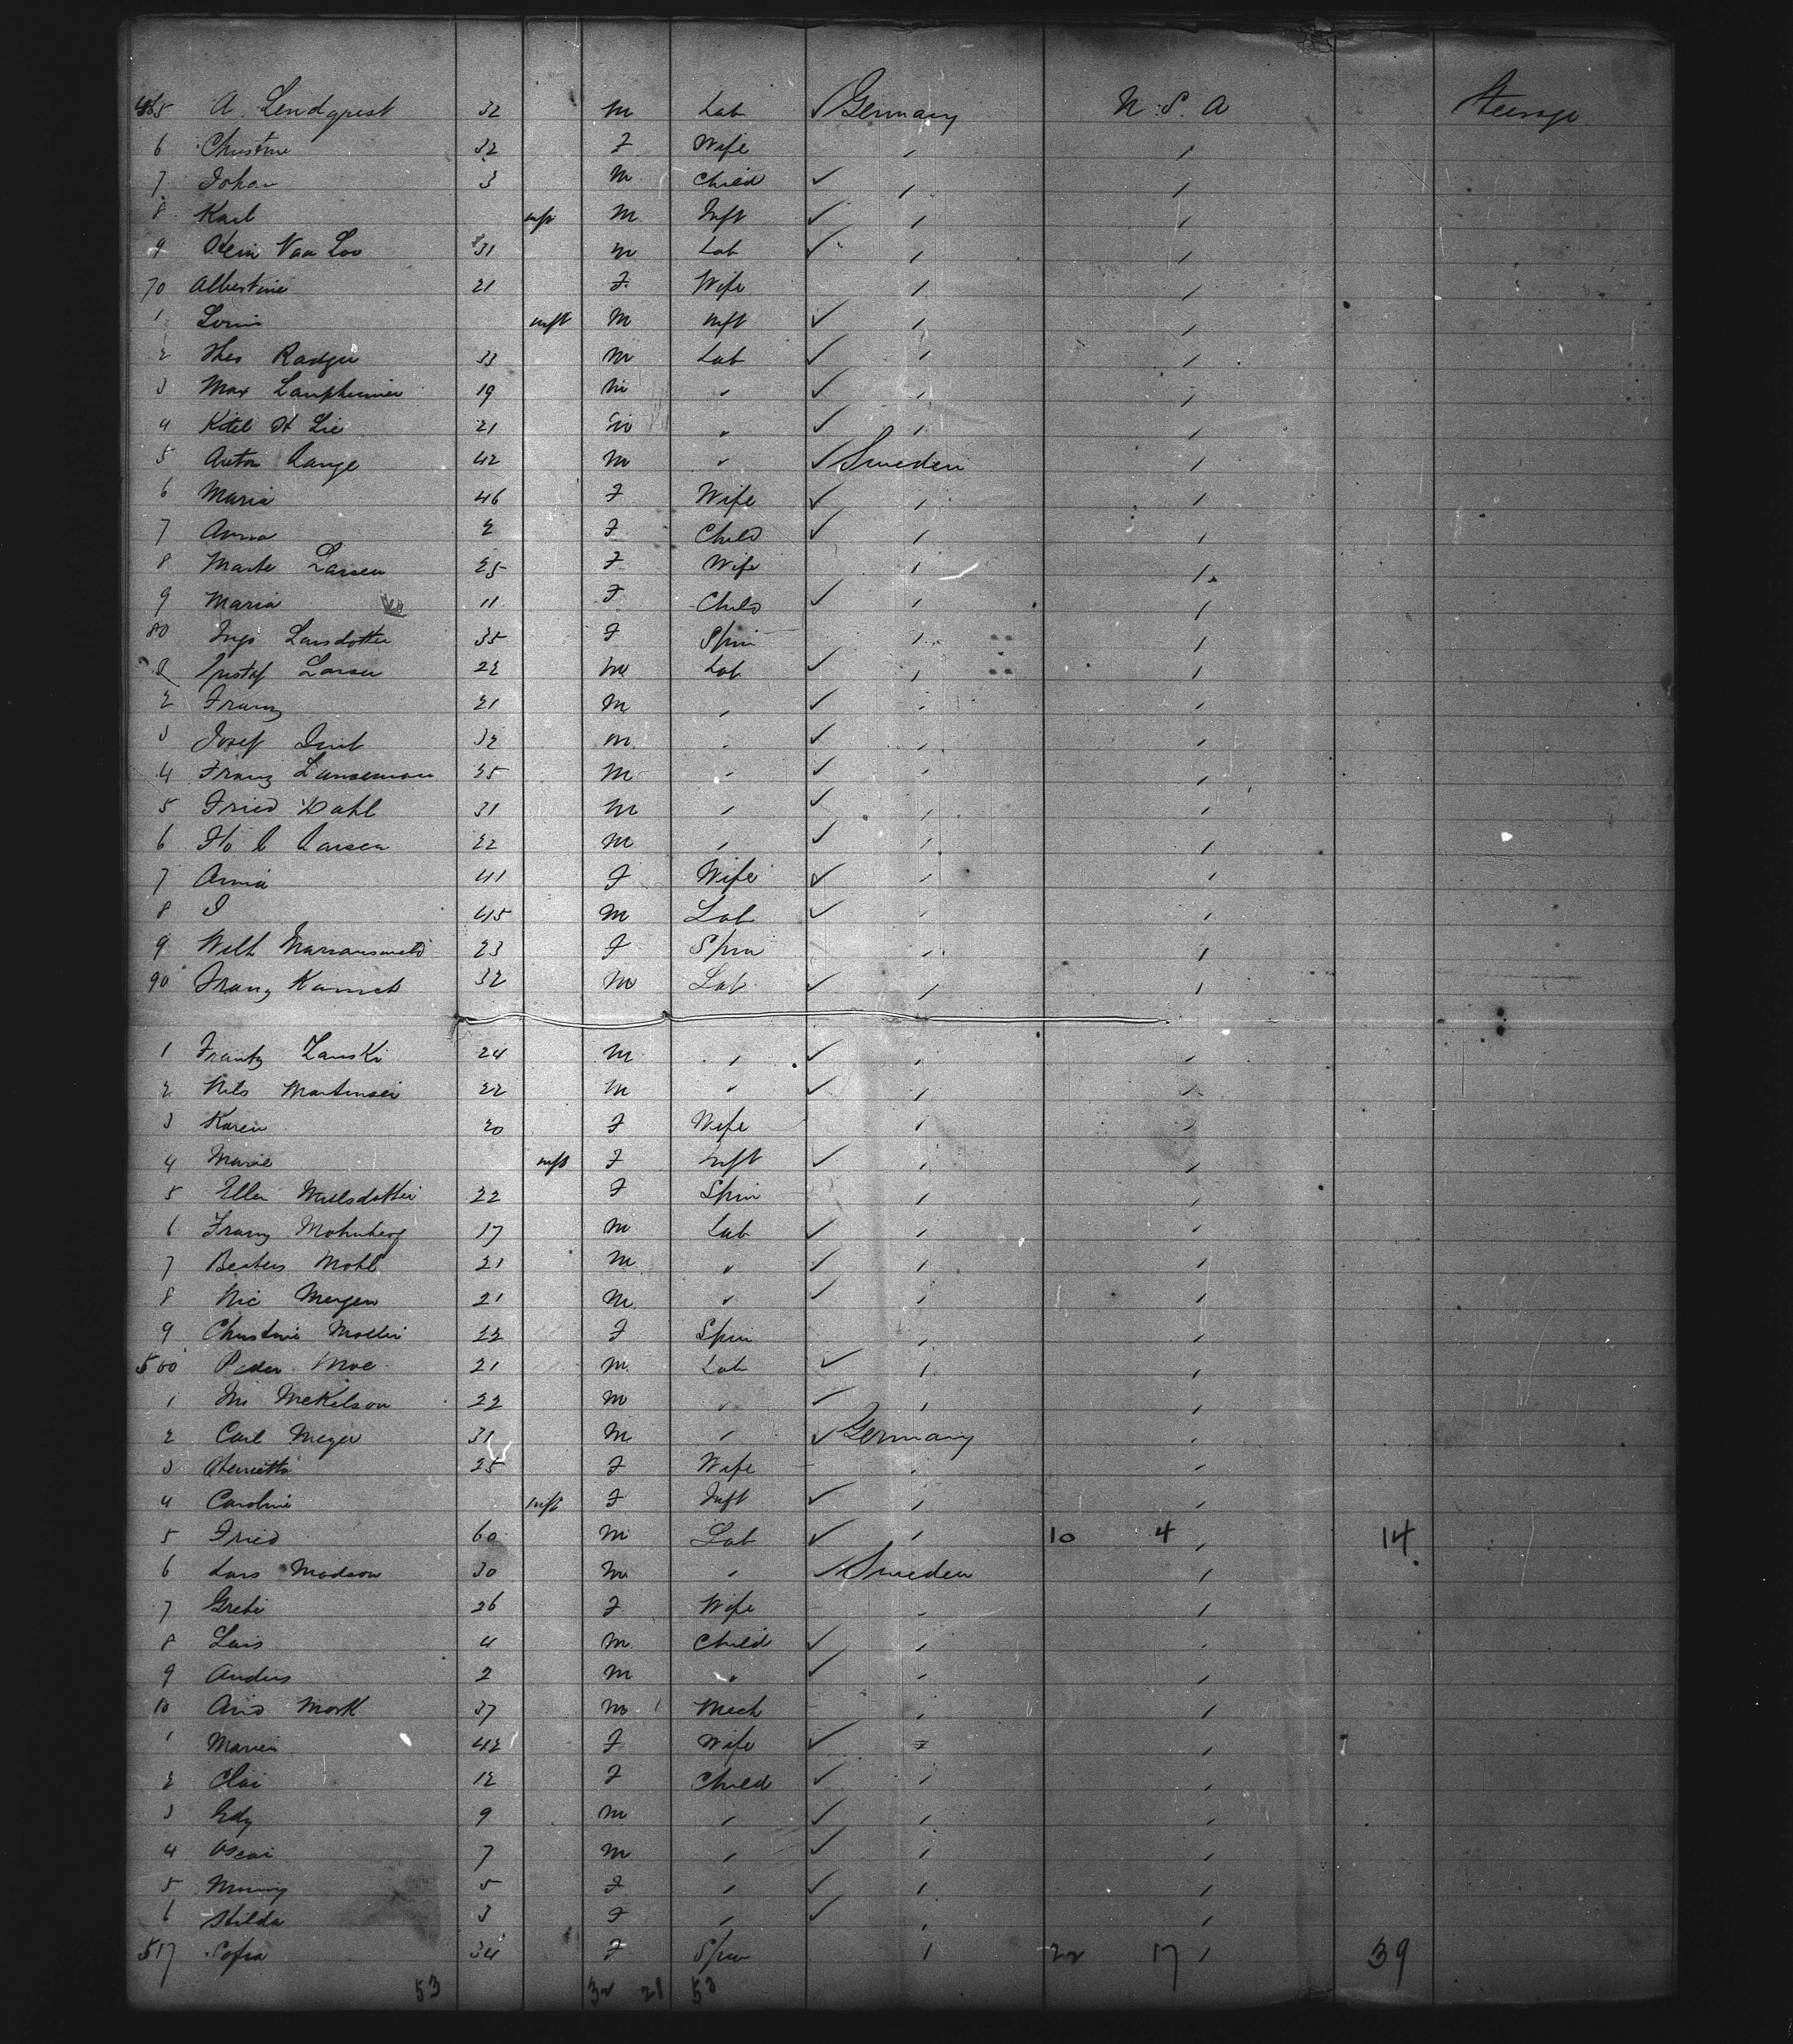 465 A. Lendqrist 32 M Lab ✓ Germany U.S.A Steerage
6 Christine 32 F Wife " "
7 Johan 3 M Child ✓ " "
8 Karl inft M Inft ✓ " "
9 Hein Van Loo 31 M Lab ✓ " "
70 Albertine 21 F Wife " "
1 Louis inft M inft ✓ " "
2 Theo 33 M Lab ✓ " "
3 Max Laupheimer 19 M " ✓ " "
4 Kitel H Lie 21 M " ✓ " "
5 Anton Lange 42 M " ✓ Sweden "
6 Maria 46 F Wife ✓ " "
7 Anna 2 F Child ✓ " "
8 Marte Larsen 25 F Wife " "
9 Maria 11 F Child ✓ " "
80 Inga Larsdotter 35 F Spin " "
Gustaf Larsen 22 M Lab ✓ " "
2 Franz 21 M " ✓ " "
3 Josef 32 M " ✓ " "
4 Franz Lanseman 35 M " ✓ " "
5 Fried Dahl 31 M " ✓ " "
6 Larsen 22 M " ✓ " "
7 Anna 41 F Wife ✓ " "
8 J 45 M Lab ✓ " "
9 Wilh 23 F Spin " "
90 Franz 32 M Lab ✓ " "
1 Frantz Lanski 24 M " ✓ " "
2 Nils Martinsen 22 M " ✓ " "
3 Karen 20 F Wife " "
4 Marie inft F Inft ✓ " "
5 Ellen 22 F Spin " "
6 Franz Mohnberg 17 M Lab ✓ " "
7 Mohl 21 M " ✓ " "
8 Nic Mergen 21 M " ✓ " "
9 Christine Moller 22 F Spin " "
500 Peder Moe 21 M Lab ✓ " "
1 Mekelson 22 M " ✓ " "
2 Carl Meyer 31 M " ✓ Germany "
3 Henrietta 25 F Wife " "
4 Caroline inft F Inft ✓ " "
5 Fried 60 M Lab ✓ " 10 4 " 14
6 Lars Madson 30 M " ✓ Sweden "
7 Grete 26 F Wife " "
8 Lars 4 M Child ✓ " "
9 Anders 2 M " ✓ " "
10 Mork 37 M Mech " "
1 Marien 42 F Wife ✓ " "
2 Clai 12 F Child ✓ " "
3 Edy 9 M " ✓ " "
4 Oscar 7 M " ✓ " "
5 5 F " ✓ " "
6 Hilda 3 F " ✓ " "
517 Sofia 34 F Spin " 22 17 " 39
53 32 21 53